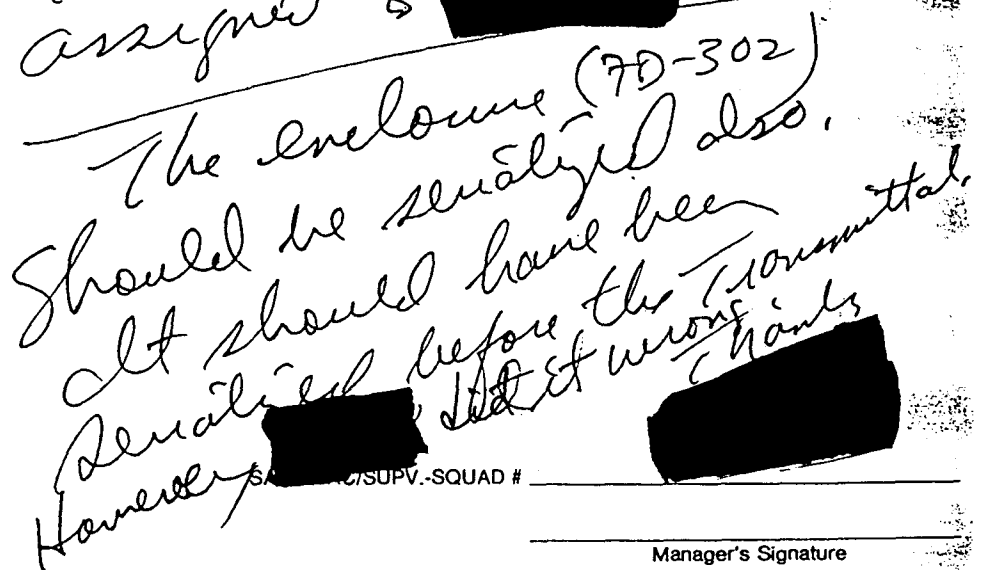 assigned to
The enclosure (7D-302)
should be serialized also.
It should have been
serialized before the Transmittal.
However, did it wrong
Thanks
C/SUPV.-SQUAD #
Manager's Signature